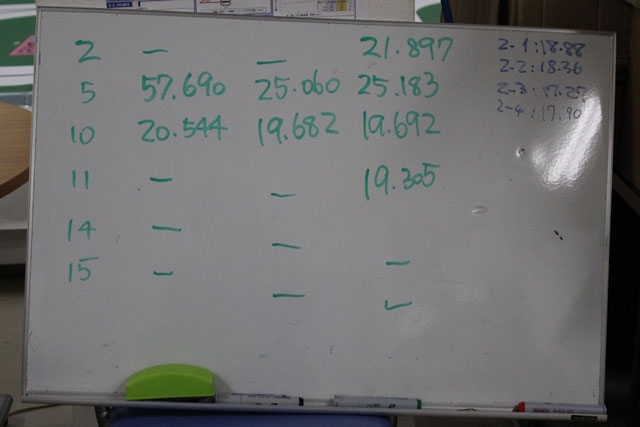 2 — — 21.897
5 57.690 25.060 25.183
10 20.544 19.682 19.692
11 — — 19.305
14 — — —
15 — — ✓
2-1:18.88
2-2:18.36
2-3:
2-4:17.90